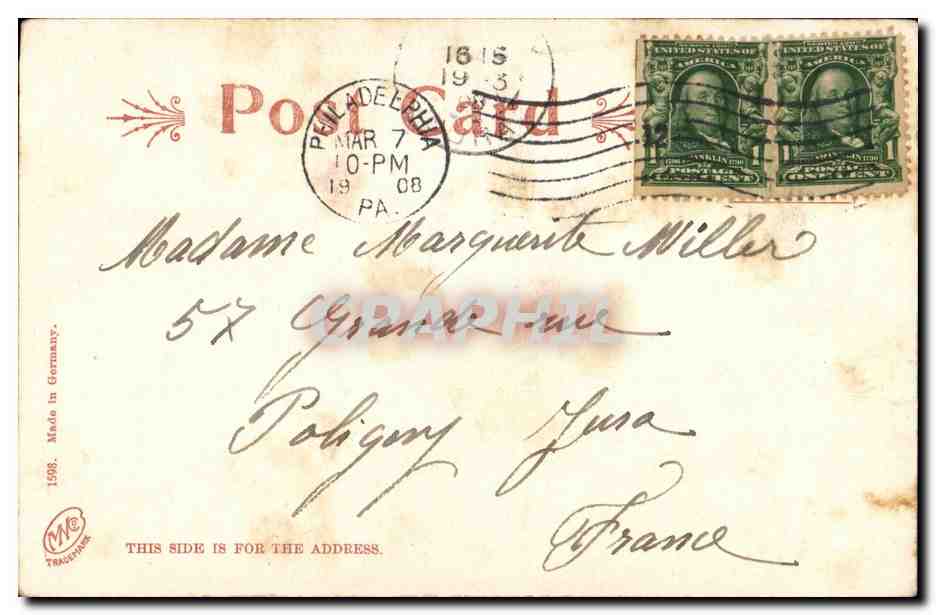 Post Card
16 15
19 3
PHILADELPHIA
MAR 7
10-PM
1908
PA.
SERIES 1902
UNITED STATES OF AMERICA
FRANKLIN
POSTAGE
1 ONE CENT 1
UNITED STATES OF AMERICA
FRANKLIN
POSTAGE
1 ONE CENT 1
Madame Marguerite Willer
57 Grande rue
Poligny Jura
France
GRAPHIL
1598. Made in Germany.
TRADEMARK
THIS SIDE IS FOR THE ADDRESS.